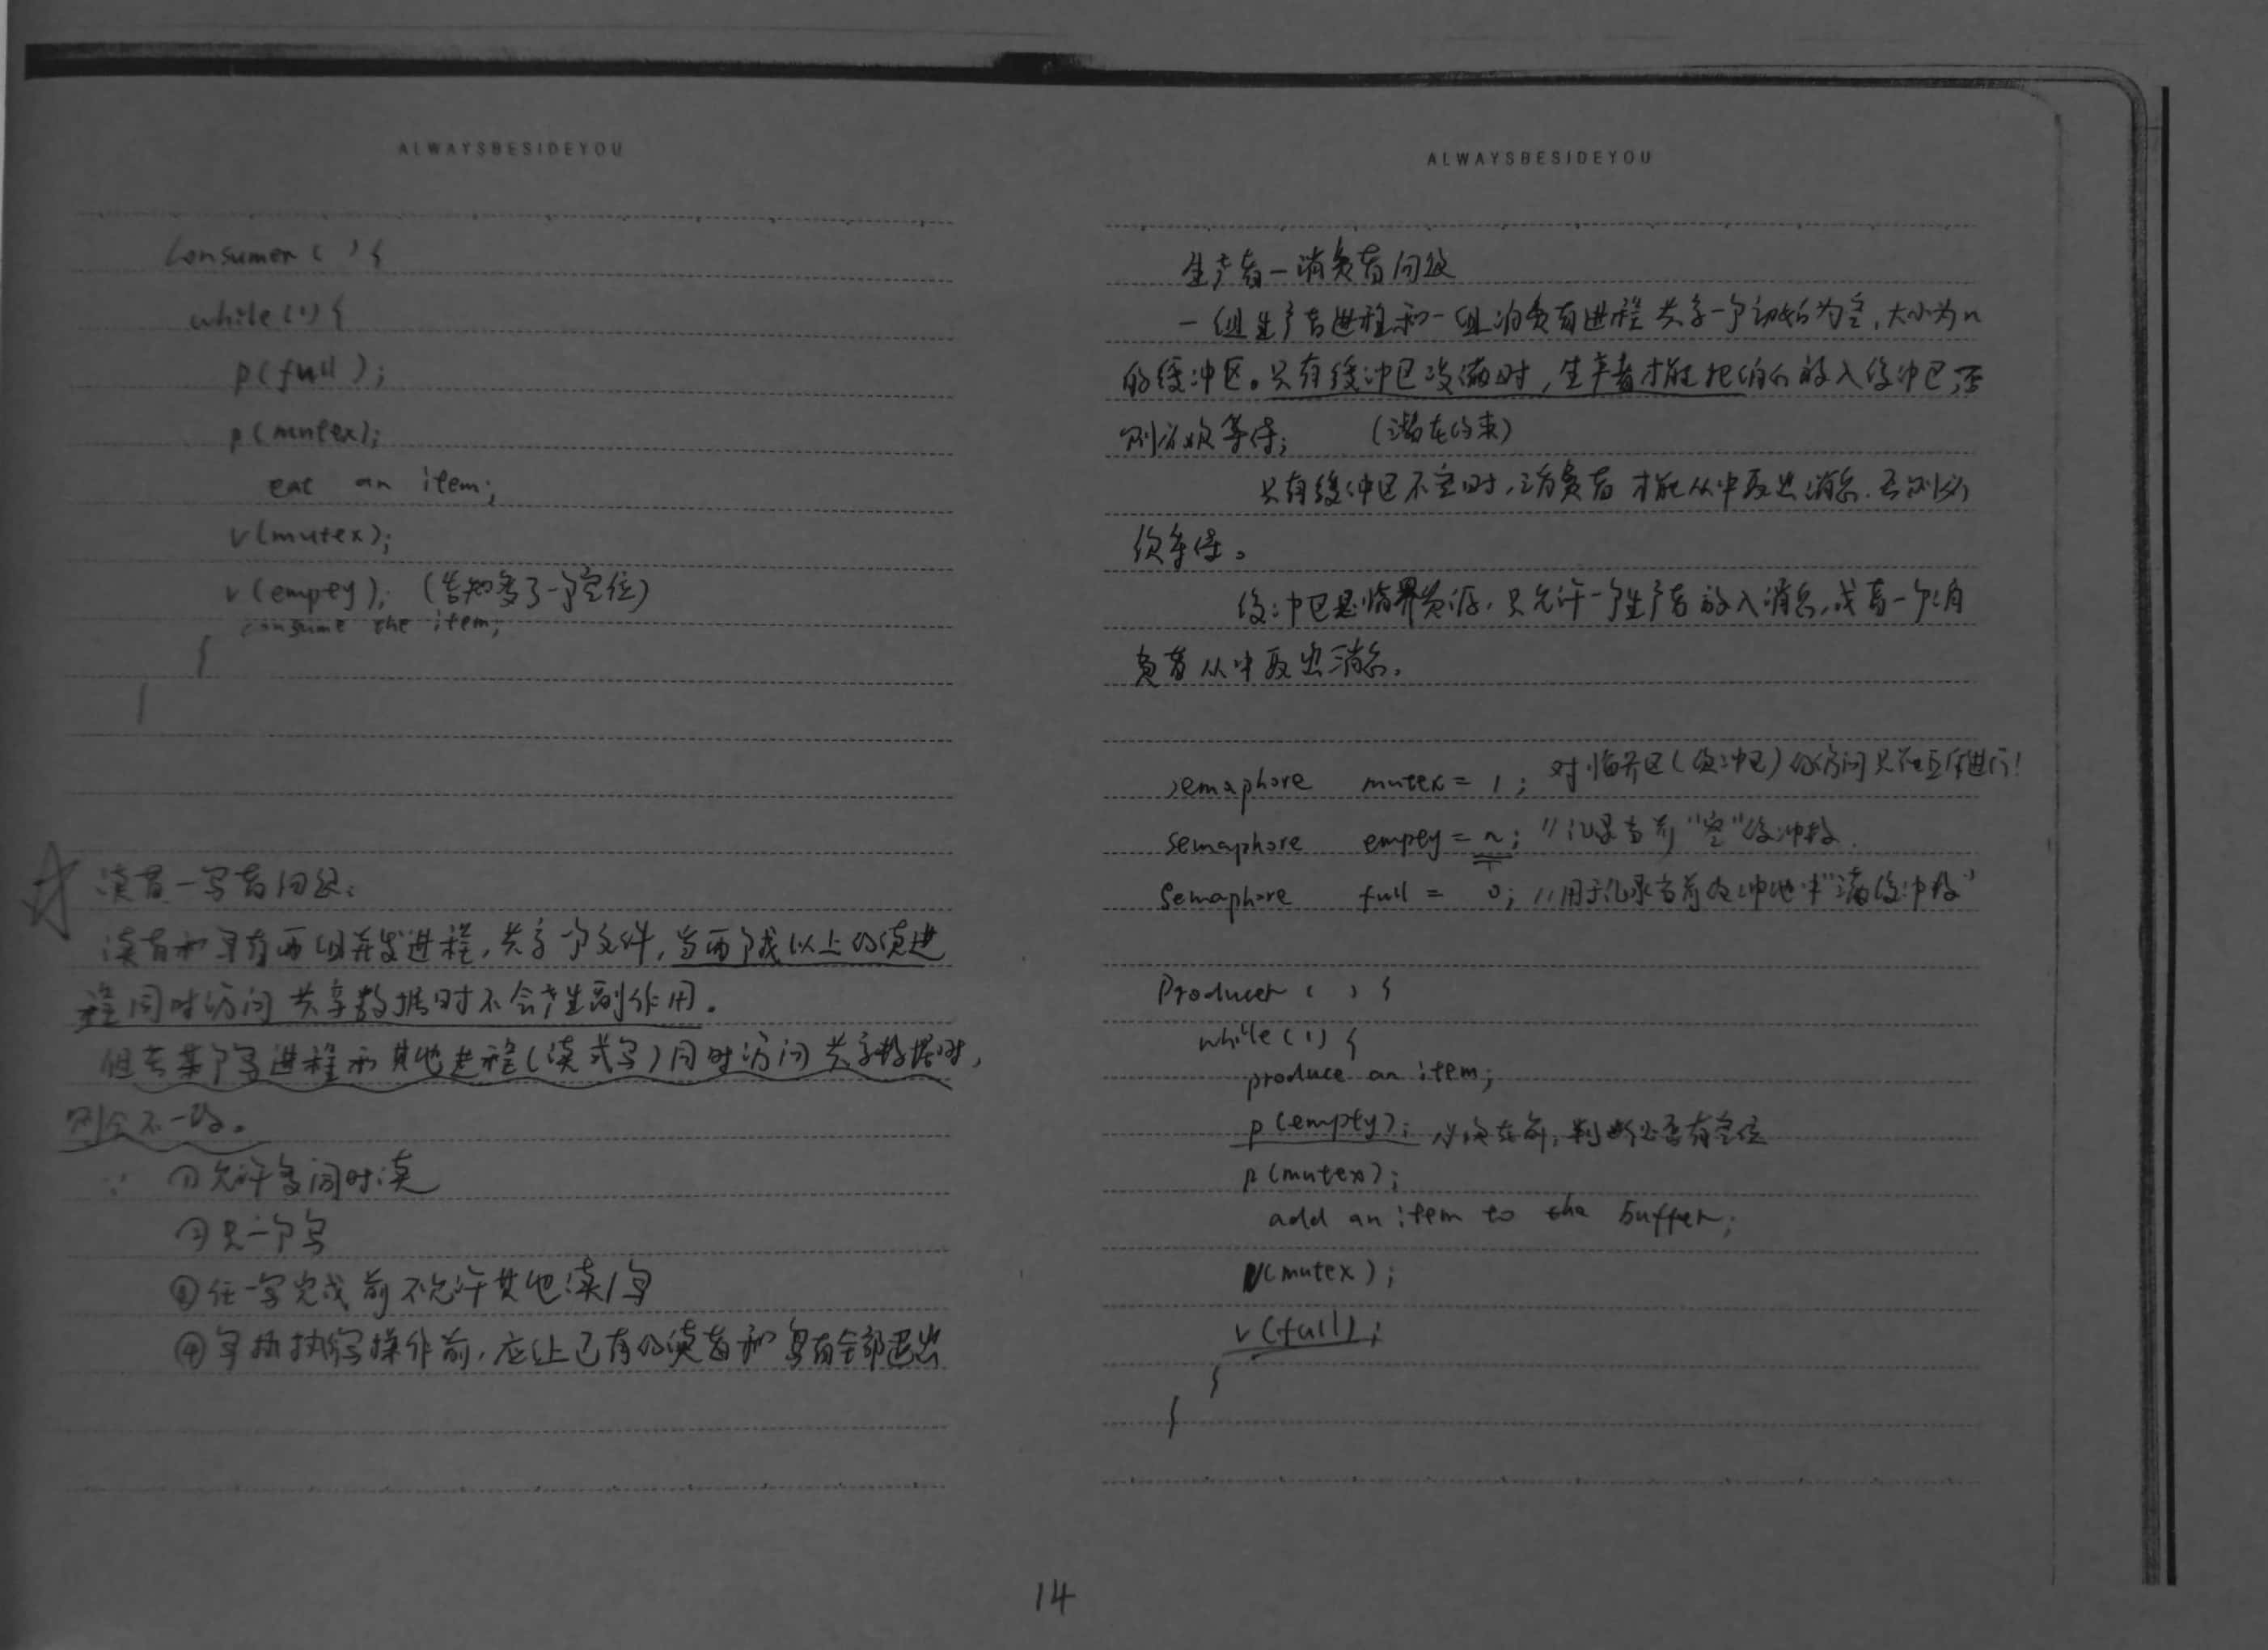 ALWAYSBESIDEYOU
Consumer ( ) {
while(1) {
p(full);
p(mutex);
eat an item;
v(mutex);
v(empey); (告知多了一个空位)
consume the item;
}
}
读者一写者问题:
读者和写者两组并发进程,共享一个文件,当两个或以上的读进
程同时访问共享数据时不会产生副作用。
但若某个写进程和其他进程(读或写)同时访问共享数据时,
则会不一致。
∵ ①允许多同时读
②只一个写
③任一写完成前不允许其他读/写
④写执执写操作前,应让已有的读者和写者全部退出
ALWAYSBESIDEYOU
生产者一消费者问题
一组生产者进程和一组消费者进程共享一个初始为空,大小为n
的缓冲区。只有缓冲区没满时,生产者才能把消息放入缓冲区,否
则必须等待; (潜在约束)
只有缓冲区不空时,消费者才能从中取出消息,否则必
须等待。
缓冲区是临界资源,只允许一个生产者放入消息,或者一个消
费者从中取出消息。
semaphore mutex = 1; 对临界区(缓冲区)的访问只能互斥进行!
semaphore empey = n; //记录当前"空"缓冲数.
semaphore full = 0; //用于记录当前缓冲池中"满缓冲数"
Producer ( ) {
while(1) {
produce an item;
p(empty); 必须在前,判断是否有空位
p(mutex);
add an item to the buffer;
V(mutex);
v(full);
}
}
14